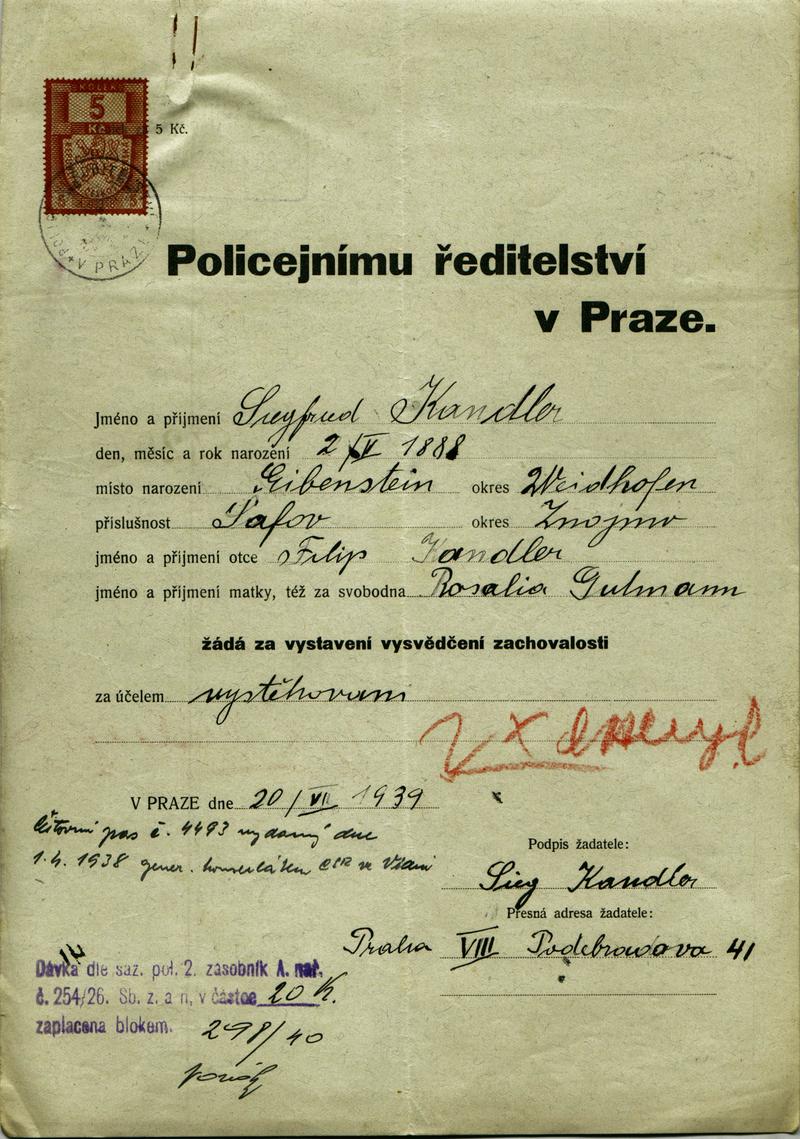 KOLEK
5
Kč
5 Kč.
V PRAZE
Policejnímu ředitelství
v Praze.
Jméno a příjmení Siegfried Kandler
den, měsíc a rok narození 2/V 1888
místo narození Gibenstein okres Weidhofen
příslušnost Šafov okres Znojmo
jméno a příjmení otce Filip Kandler
jméno a příjmení matky, též za svobodna Rosalia Gutmann
žádá za vystavení vysvědčení zachovalosti
za účelem vystěhovani
V PRAZE dne 20/VI 1939
pas č. 4493 vydaný dne
1.4. 1938 gener. ČSR ve Vídni
Podpis žadatele:
Sieg Kandler
Přesná adresa žadatele:
Praha VIII Podebradova 41
Dávka dle saz. pol. 2. zásobník A. nař.
č. 254/26. Sb. z. a n, v částce 20 K.
zaplacena blokem.
298/40